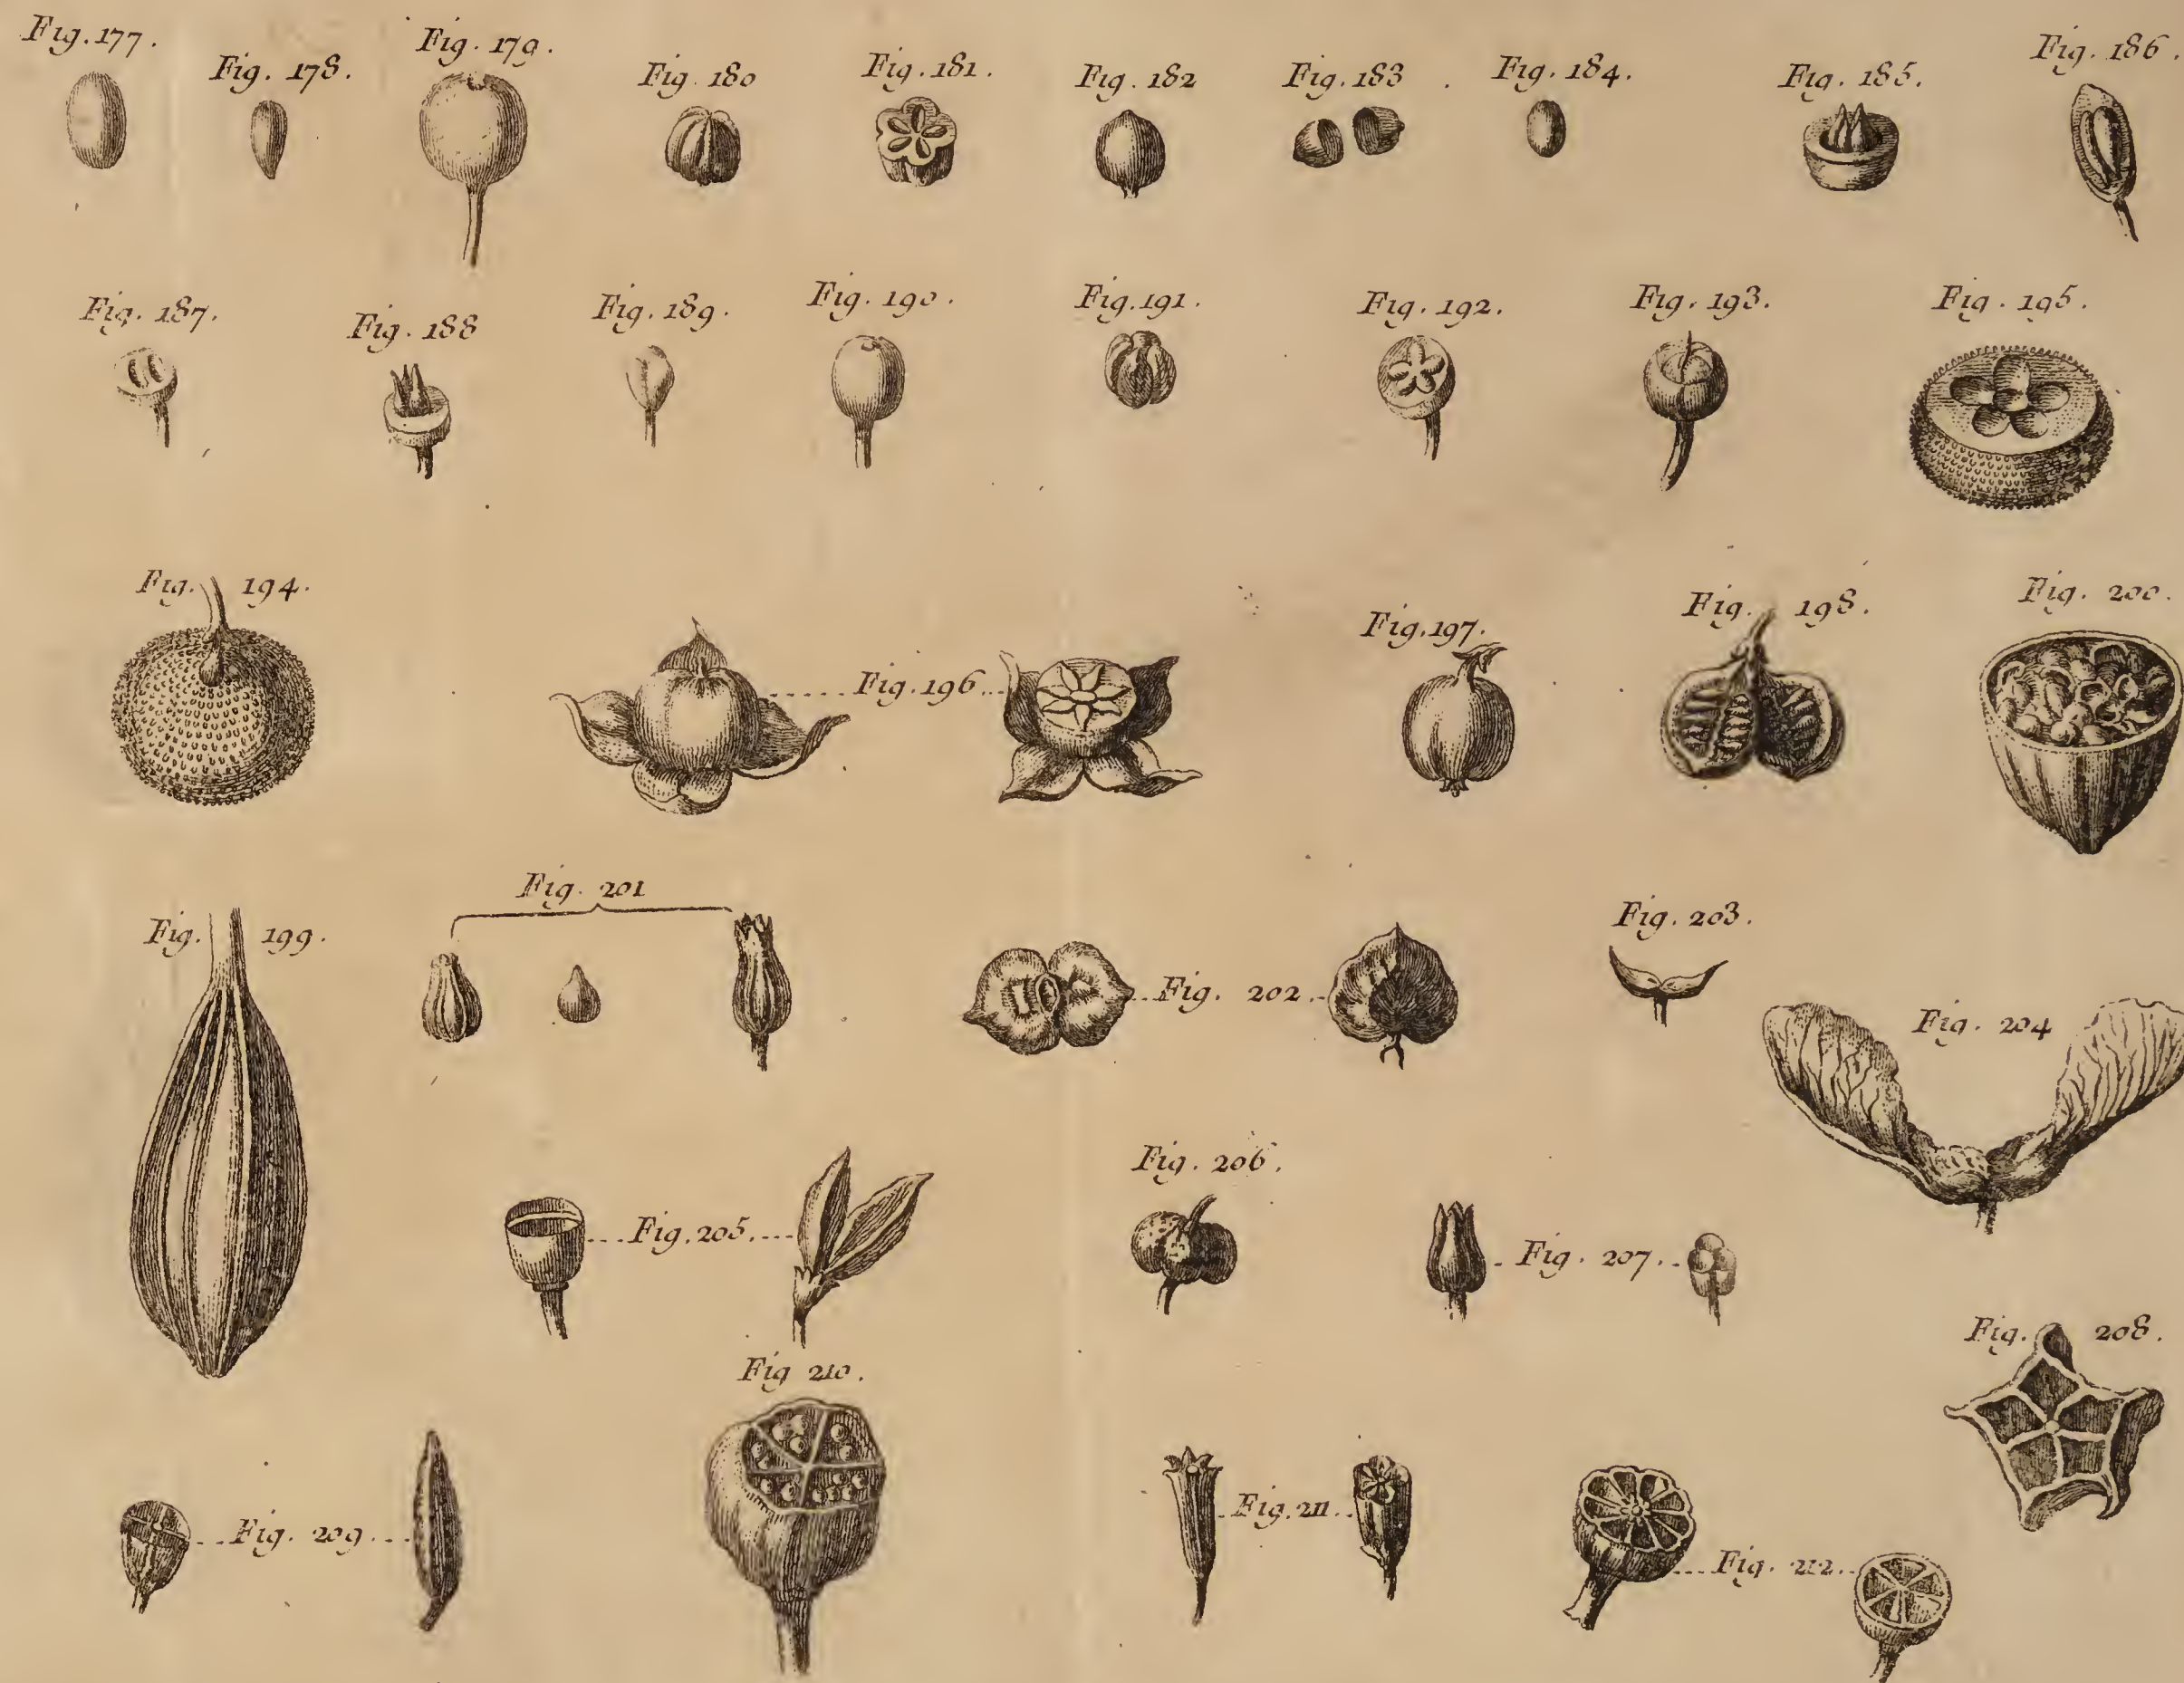 Fig. 177.
Fig. 178.
Fig. 179.
Fig. 180
Fig. 181.
Fig. 182
Fig. 183.
Fig. 184.
Fig. 185.
Fig. 186.
Fig. 187.
Fig. 188
Fig. 189.
Fig. 190.
Fig. 191.
Fig. 192.
Fig. 193.
Fig. 195.
Fig. 194.
Fig. 196.
Fig. 197.
Fig. 198.
Fig. 200.
Fig. 199.
Fig. 201
Fig. 202.
Fig. 203.
Fig. 204
Fig. 205.
Fig. 206.
Fig. 207.
Fig. 208.
Fig 210.
Fig. 209.
Fig. 211.
Fig. 212.